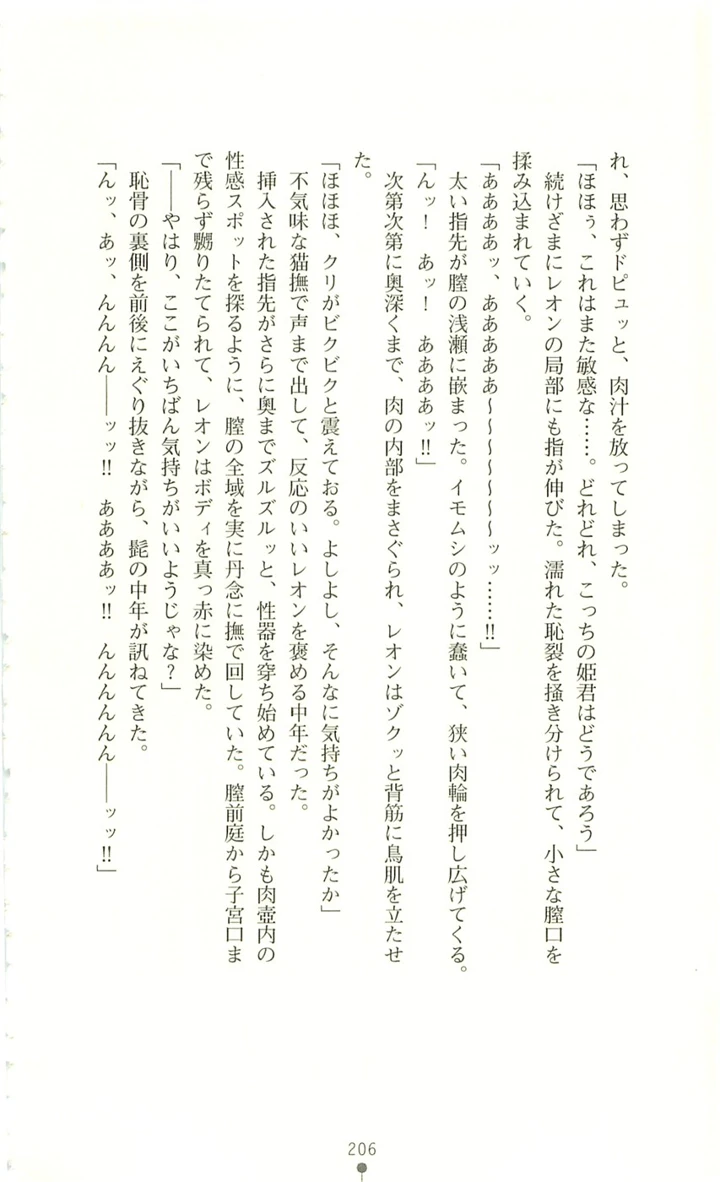 れ、思わずドピュッと、肉汁を放ってしまった。
「ほほぅ、これはまた敏感な……。どれどれ、こっちの姫君はどうであろう」
続けざまにレオンの局部にも指が伸びた。濡れた恥裂を掻き分けられて、小さな膣口を
揉み込まれていく。
「ああああッ、あああああ～～～～～～ッッ……!!」
太い指先が膣の浅瀬に嵌まった。イモムシのように蠢いて、狭い肉輪を押し広げてくる。
「んッ！　あッ！　ああああッ!!」
次第次第に奥深くまで、肉の内部をまさぐられ、レオンはゾクッと背筋に鳥肌を立たせ
た。
「ほほほ、クリがビクビクと震えておる。よしよし、そんなに気持ちがよかったか」
不気味な猫撫で声まで出して、反応のいいレオンを褒める中年だった。
挿入された指先がさらに奥までズルズルッと、性器を穿ち始めている。しかも肉壺内の
性感スポットを探るように、膣の全域を実に丹念に撫で回していた。膣前庭から子宮口ま
で残らず嬲りたてられて、レオンはボディを真っ赤に染めた。
「――やはり、ここがいちばん気持ちがいいようじゃな？」
恥骨の裏側を前後にえぐり抜きながら、髭の中年が訊ねてきた。
「んッ、あッ、んんんん――ッッ!!　ああああッ!!　んんんんんん――ッッ!!」
206